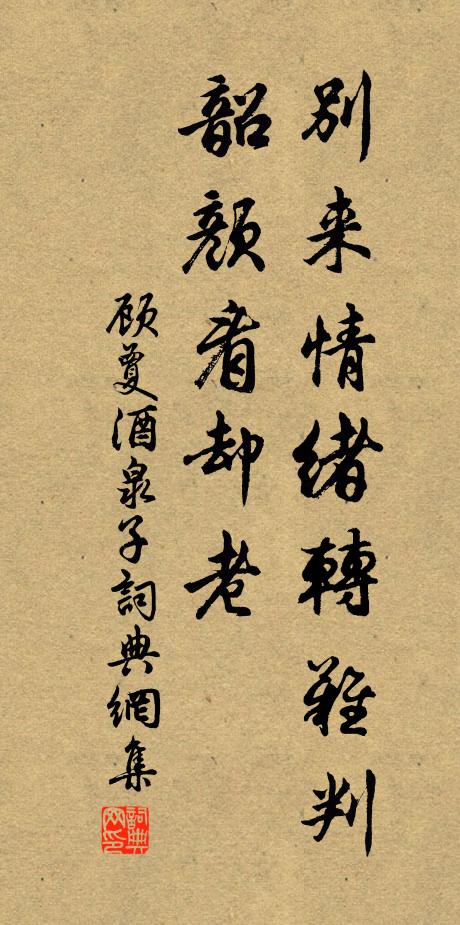 别来情绪转難判
韶颜看却老
顾夐酒泉子詞典網集
詞典网印